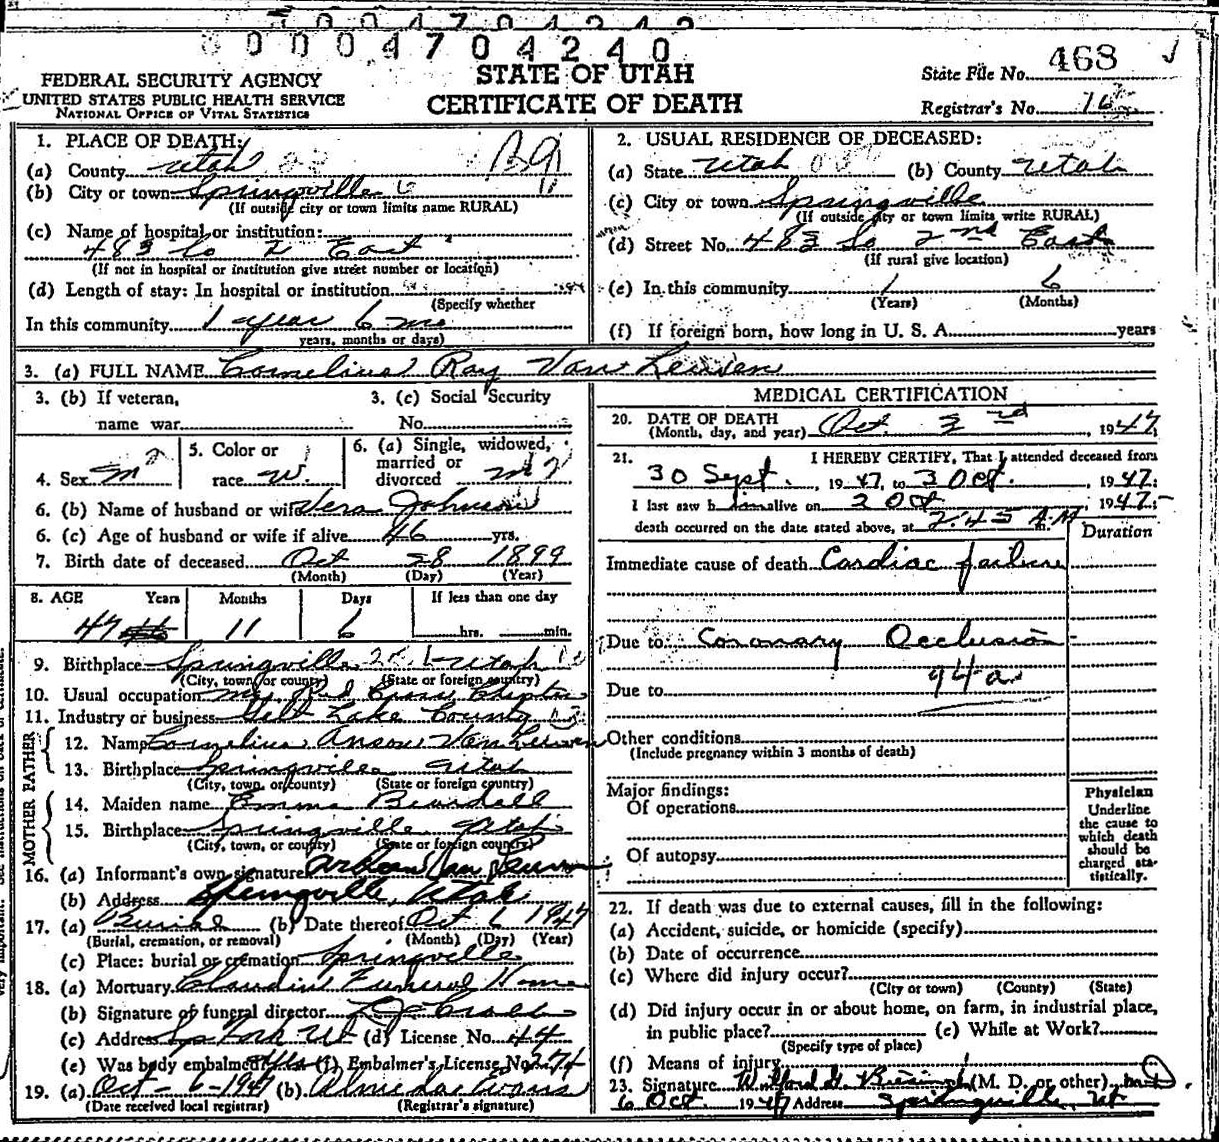 0 0 0 4 7 0 4 2 4 0
FEDERAL SECURITY AGENCY
UNITED STATES PUBLIC HEALTH SERVICE
NATIONAL OFFICE OF VITAL STATISTICS
STATE OF UTAH
CERTIFICATE OF DEATH
State File No. 468
Registrar's No.
1. PLACE OF DEATH:
(a) County Utah
(b) City or town Springville
(If outside city or town limits name RURAL)
(c) Name of hospital or institution:
483 So 2 East
(If not in hospital or institution give street number or location)
(d) Length of stay: In hospital or institution
(Specify whether
In this community 1 year 6 mo
years, months or days)
2. USUAL RESIDENCE OF DECEASED:
(a) State Utah (b) County Utah
(c) City or town Springville
(If outside city or town limits write RURAL)
(d) Street No. 483 So 2nd East
(If rural give location)
(e) In this community 1 6
(Years) (Months)
(f) If foreign born, how long in U. S. A. years
3. (a) FULL NAME Cornelius Ray Van Leuven
3. (b) If veteran,
name war
3. (c) Social Security
No.
4. Sex M
5. Color or
race W.
6. (a) Single, widowed,
married or
divorced M
6. (b) Name of husband or wife Vera Johnson
6. (c) Age of husband or wife if alive 46 yrs.
7. Birth date of deceased Oct 28 1899
(Month) (Day) (Year)
8. AGE Years Months Days If less than one day
47 11 6 hrs. min.
9. Birthplace Springville Utah
(City, town, or county) (State or foreign country)
10. Usual occupation Red Cross Chapter
11. Industry or business Salt Lake County
FATHER
12. Name Cornelius Anson Van Leuven
13. Birthplace Springville Utah
(City, town, or county) (State or foreign country)
MOTHER
14. Maiden name Emma Beardall
15. Birthplace Springville Utah
(City, town, or county) (State or foreign country)
16. (a) Informant's own signature Van Leuven
(b) Address Springville, Utah
17. (a) Burial (b) Date thereof Oct 6 1947
(Burial, cremation, or removal) (Month) (Day) (Year)
(c) Place: burial or cremation Springville
18. (a) Mortuary Claudin Funeral Home
(b) Signature of funeral director
(c) Address Sp Fork Ut (d) License No. 44
(e) Was body embalmed? Yes (f) Embalmer's License No. 274
19. (a) Oct - 6 - 1947 (b) Almeda Evans
(Date received local registrar) (Registrar's signature)
MEDICAL CERTIFICATION
20. DATE OF DEATH
(Month, day, and year) Oct 3rd, 1947
21. I HEREBY CERTIFY, That I attended deceased from
30 Sept., 1947, to 3 Oct., 1947;
I last saw him alive on 2 Oct 1947;
death occurred on the date stated above, at 2:45 A.M
Duration
Immediate cause of death Cardiac failure
Due to Coronary Occlusion
94a
Due to
Other conditions
(Include pregnancy within 3 months of death)
Major findings:
Of operations
Of autopsy
Physician
Underline
the cause to
which death
should be
charged sta-
tistically.
22. If death was due to external causes, fill in the following:
(a) Accident, suicide, or homicide (specify)
(b) Date of occurrence
(c) Where did injury occur?
(City or town) (County) (State)
(d) Did injury occur in or about home, on farm, in industrial place,
in public place? (e) While at Work?
(Specify type of place)
(f) Means of injury
23. Signature (M. D. or other) M.D.
6 Oct. 1947 Address Springville, Ut